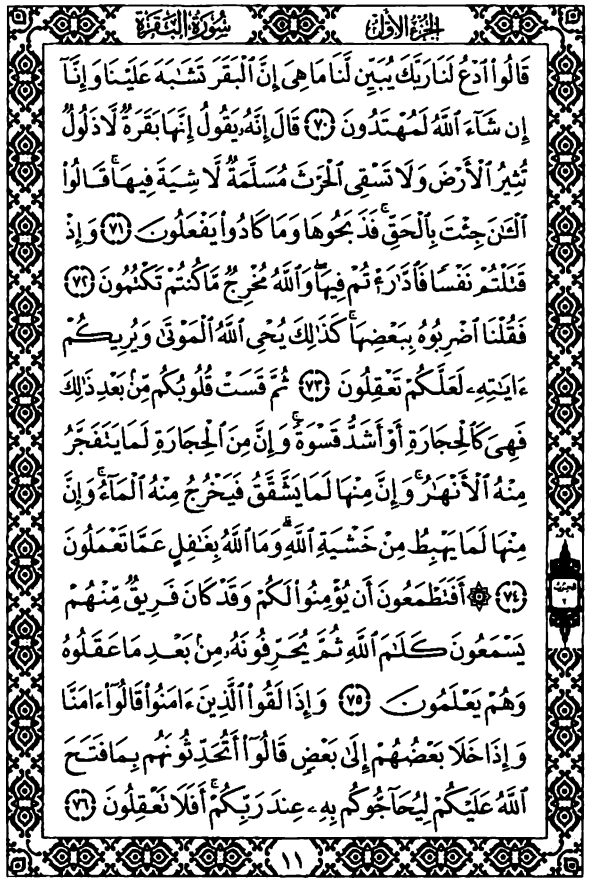 سُورَةُ البَقَرَةِ الجُزْءُ الأَوَّلُ
قَالُوا۟ ٱدْعُ لَنَا رَبَّكَ يُبَيِّن لَّنَا مَا هِىَ إِنَّ ٱلْبَقَرَ تَشَٰبَهَ عَلَيْنَا وَإِنَّآ
إِن شَآءَ ٱللَّهُ لَمُهْتَدُونَ ٧٠ قَالَ إِنَّهُۥ يَقُولُ إِنَّهَا بَقَرَةٌ لَّا ذَلُولٌ
تُثِيرُ ٱلْأَرْضَ وَلَا تَسْقِى ٱلْحَرْثَ مُسَلَّمَةٌ لَّا شِيَةَ فِيهَا ۚ قَالُوا۟
ٱلْـَٰٔنَ جِئْتَ بِٱلْحَقِّ ۚ فَذَبَحُوهَا وَمَا كَادُوا۟ يَفْعَلُونَ ٧١ وَإِذْ
قَتَلْتُمْ نَفْسًا فَٱدَّٰرَْٰٔتُمْ فِيهَا ۖ وَٱللَّهُ مُخْرِجٌ مَّا كُنتُمْ تَكْتُمُونَ ٧٢
فَقُلْنَا ٱضْرِبُوهُ بِبَعْضِهَا ۚ كَذَٰلِكَ يُحْىِ ٱللَّهُ ٱلْمَوْتَىٰ وَيُرِيكُمْ
ءَايَٰتِهِۦ لَعَلَّكُمْ تَعْقِلُونَ ٧٣ ثُمَّ قَسَتْ قُلُوبُكُم مِّنۢ بَعْدِ ذَٰلِكَ
فَهِىَ كَٱلْحِجَارَةِ أَوْ أَشَدُّ قَسْوَةً ۚ وَإِنَّ مِنَ ٱلْحِجَارَةِ لَمَا يَتَفَجَّرُ
مِنْهُ ٱلْأَنْهَٰرُ ۚ وَإِنَّ مِنْهَا لَمَا يَشَّقَّقُ فَيَخْرُجُ مِنْهُ ٱلْمَآءُ ۚ وَإِنَّ
مِنْهَا لَمَا يَهْبِطُ مِنْ خَشْيَةِ ٱللَّهِ ۗ وَمَا ٱللَّهُ بِغَٰفِلٍ عَمَّا تَعْمَلُونَ
٧٤ ۞ أَفَتَطْمَعُونَ أَن يُؤْمِنُوا۟ لَكُمْ وَقَدْ كَانَ فَرِيقٌ مِّنْهُمْ
يَسْمَعُونَ كَلَٰمَ ٱللَّهِ ثُمَّ يُحَرِّفُونَهُۥ مِنۢ بَعْدِ مَا عَقَلُوهُ
وَهُمْ يَعْلَمُونَ ٧٥ وَإِذَا لَقُوا۟ ٱلَّذِينَ ءَامَنُوا۟ قَالُوٓا۟ ءَامَنَّا
وَإِذَا خَلَا بَعْضُهُمْ إِلَىٰ بَعْضٍ قَالُوٓا۟ أَتُحَدِّثُونَهُم بِمَا فَتَحَ
ٱللَّهُ عَلَيْكُمْ لِيُحَآجُّوكُم بِهِۦ عِندَ رَبِّكُمْ ۚ أَفَلَا تَعْقِلُونَ ٧٦
١١